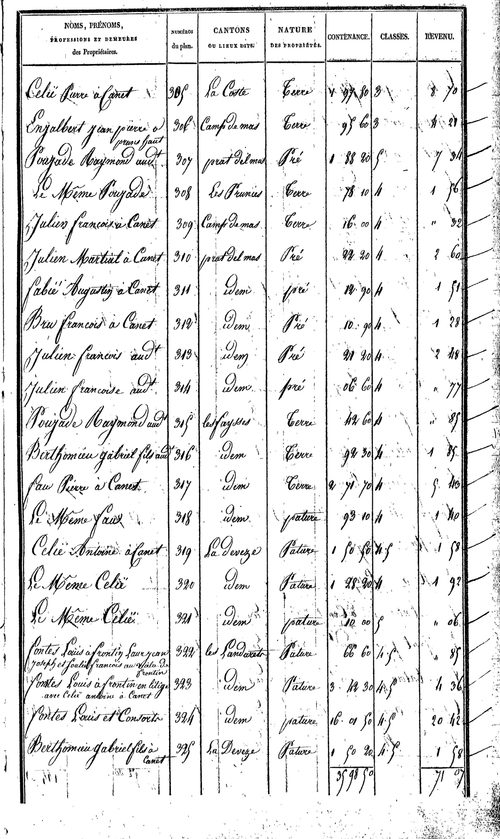 NOMS, PRÉNOMS, PROFESSIONS ET DEMEURES des Propriétaires. NUMÉROS du plan. CANTONS OU LIEUX DITS. NATURE DES PROPRIÉTÉS. CONTENANCE. CLASSES. REVENU.
Celié Pierre à Canet 305 La Coste Terre 97 80 3 70
Enjalbert jean pierre à 306 Camp de mas Terre 95 60 3 21
Pouzade Raymond audt 307 prat del mas Pré 1 88 20 5 7 34
Le Même Pouzade 308 Les Prunies Terre 78 10 4 1 56
Julien françois à Canet 309 Camp de mas Terre 16 00 4 " 32
Julien Martial à Canet 310 prat del mas Pré 22 20 4 2 60
fabié Augustin à Canet 311 idem pré 12 90 4 1 51
Bru francois à Canet 312 idem Pré 10 90 4 1 28
Julien francois audt 313 idem Pré 21 20 4 2 48
Julien francoise audt 314 idem pré 06 60 4 " 77
Pouzade Raymond audt 315 les faysses Terre 42 60 4 " 85
Berthomieu gabriel fils audt 316 idem Terre 92 30 4 1 85
fau Pierre à Canet 317 idem Terre 2 71 70 4 5 43
Le Même fau 318 idem pature 93 10 4 1 40
Celié Antoine à Canet 319 La deveze Pature 1 50 50 4 5 1 58
Le Même Celié 320 idem Pature 1 28 20 4 1 92
Le Même Celié 321 idem pature 10 00 5 " 06
fontes Louis à frontin 322 les Landarels Pature 66 60 4 5 " 85
joseph et francois
frontin
fontes Louis à frontin en litige 323 idem Pature 3 42 30 4 5 4 36
avec Celié antoine à Canet
fontes Louis et Consorts 324 idem pature 16 01 50 4 5 20 42
Berthomieu gabriel fils à 325 La Deveze Pature 1 50 20 4 5 1 58
Canet
35 98 50 71 07